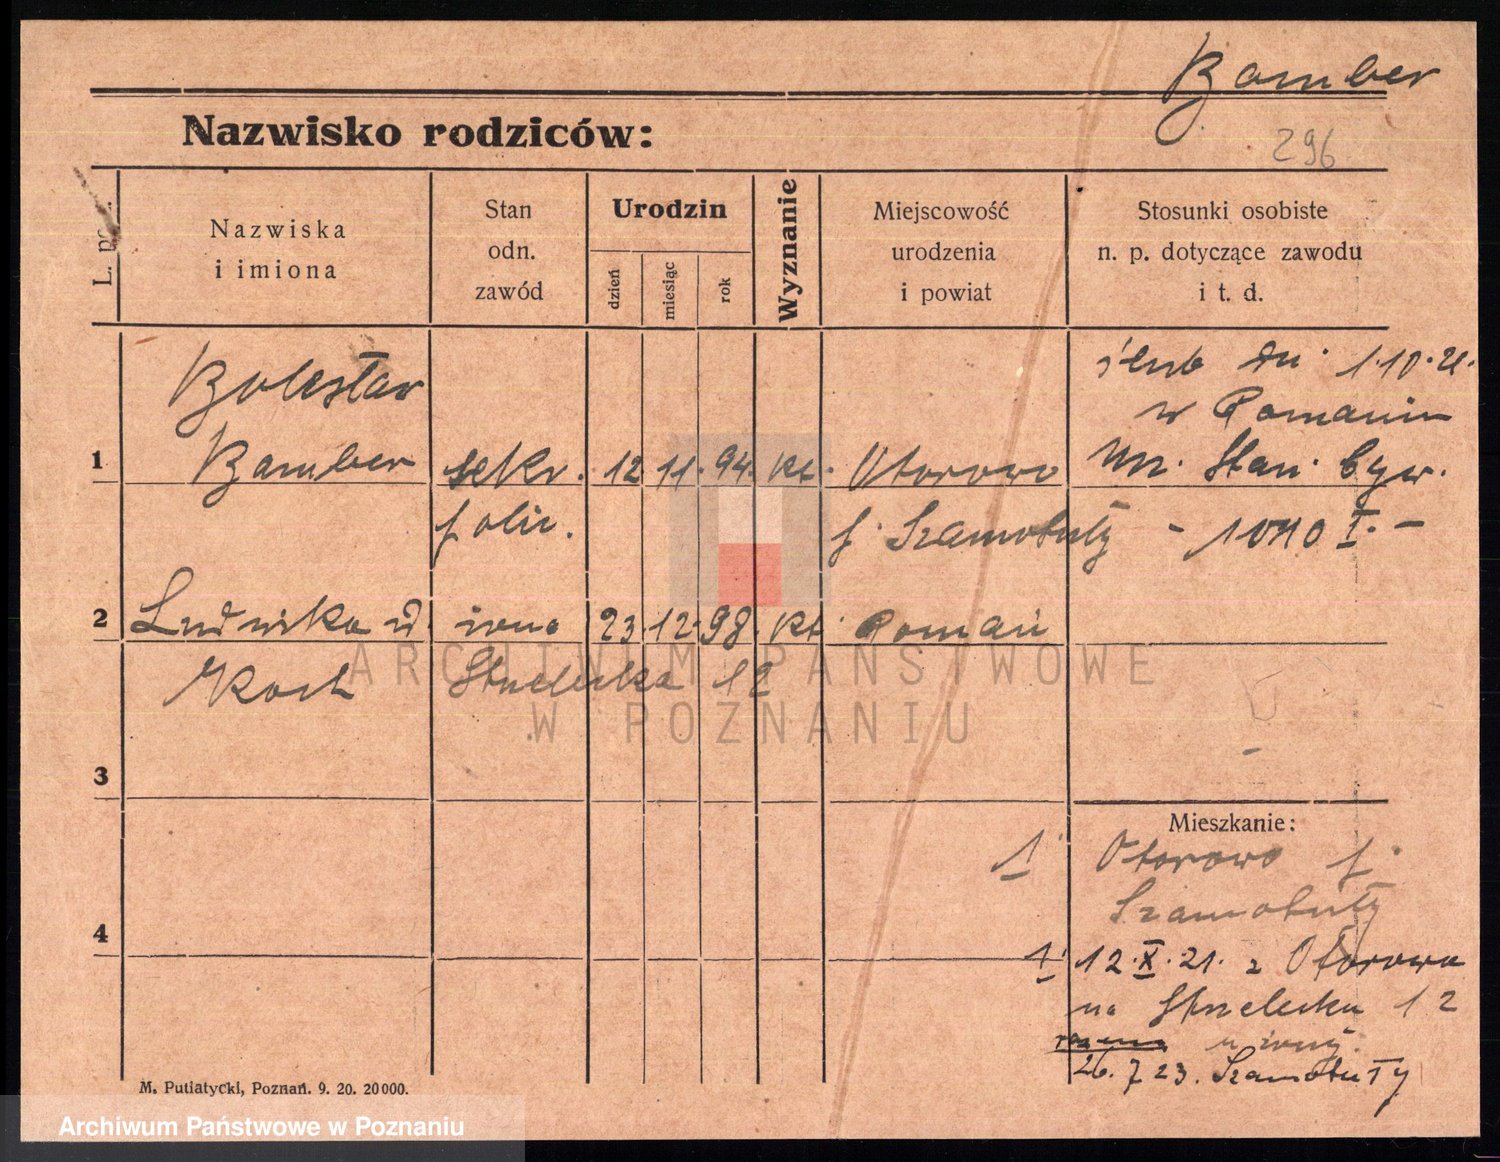 Bamber
Nazwisko rodziców:
296
L. p.
Nazwiska
i imiona
Stan
odn.
zawód
Urodzin
dzień
miesiąc
rok
Wyznanie
Miejscowość
urodzenia
i powiat
Stosunki osobiste
n. p. dotyczące zawodu
i t. d.
ślub dn. 1.10.21.
w Poznaniu
Bolesław
1 Bamber sekr. 12 11. 94. kt. Otorowo Urz. Stan. Cyw.
polic. p. Szamotuły - 1010 I. -
2 Ludwika ż. 23. 12. 98. kt. Poznań
Koch Strzelecka 12
ARCHIWUM PAŃSTWOWE
W POZNANIU
3
Mieszkanie:
1. Otorowo p.
Szamotuły
4
1. 12.X.21. z Otorowa
na Strzelecka 12
u żony.
26.7.23. Szamotuły
M. Putiatycki, Poznań. 9. 20. 20000.
Archiwum Państwowe w Poznaniu